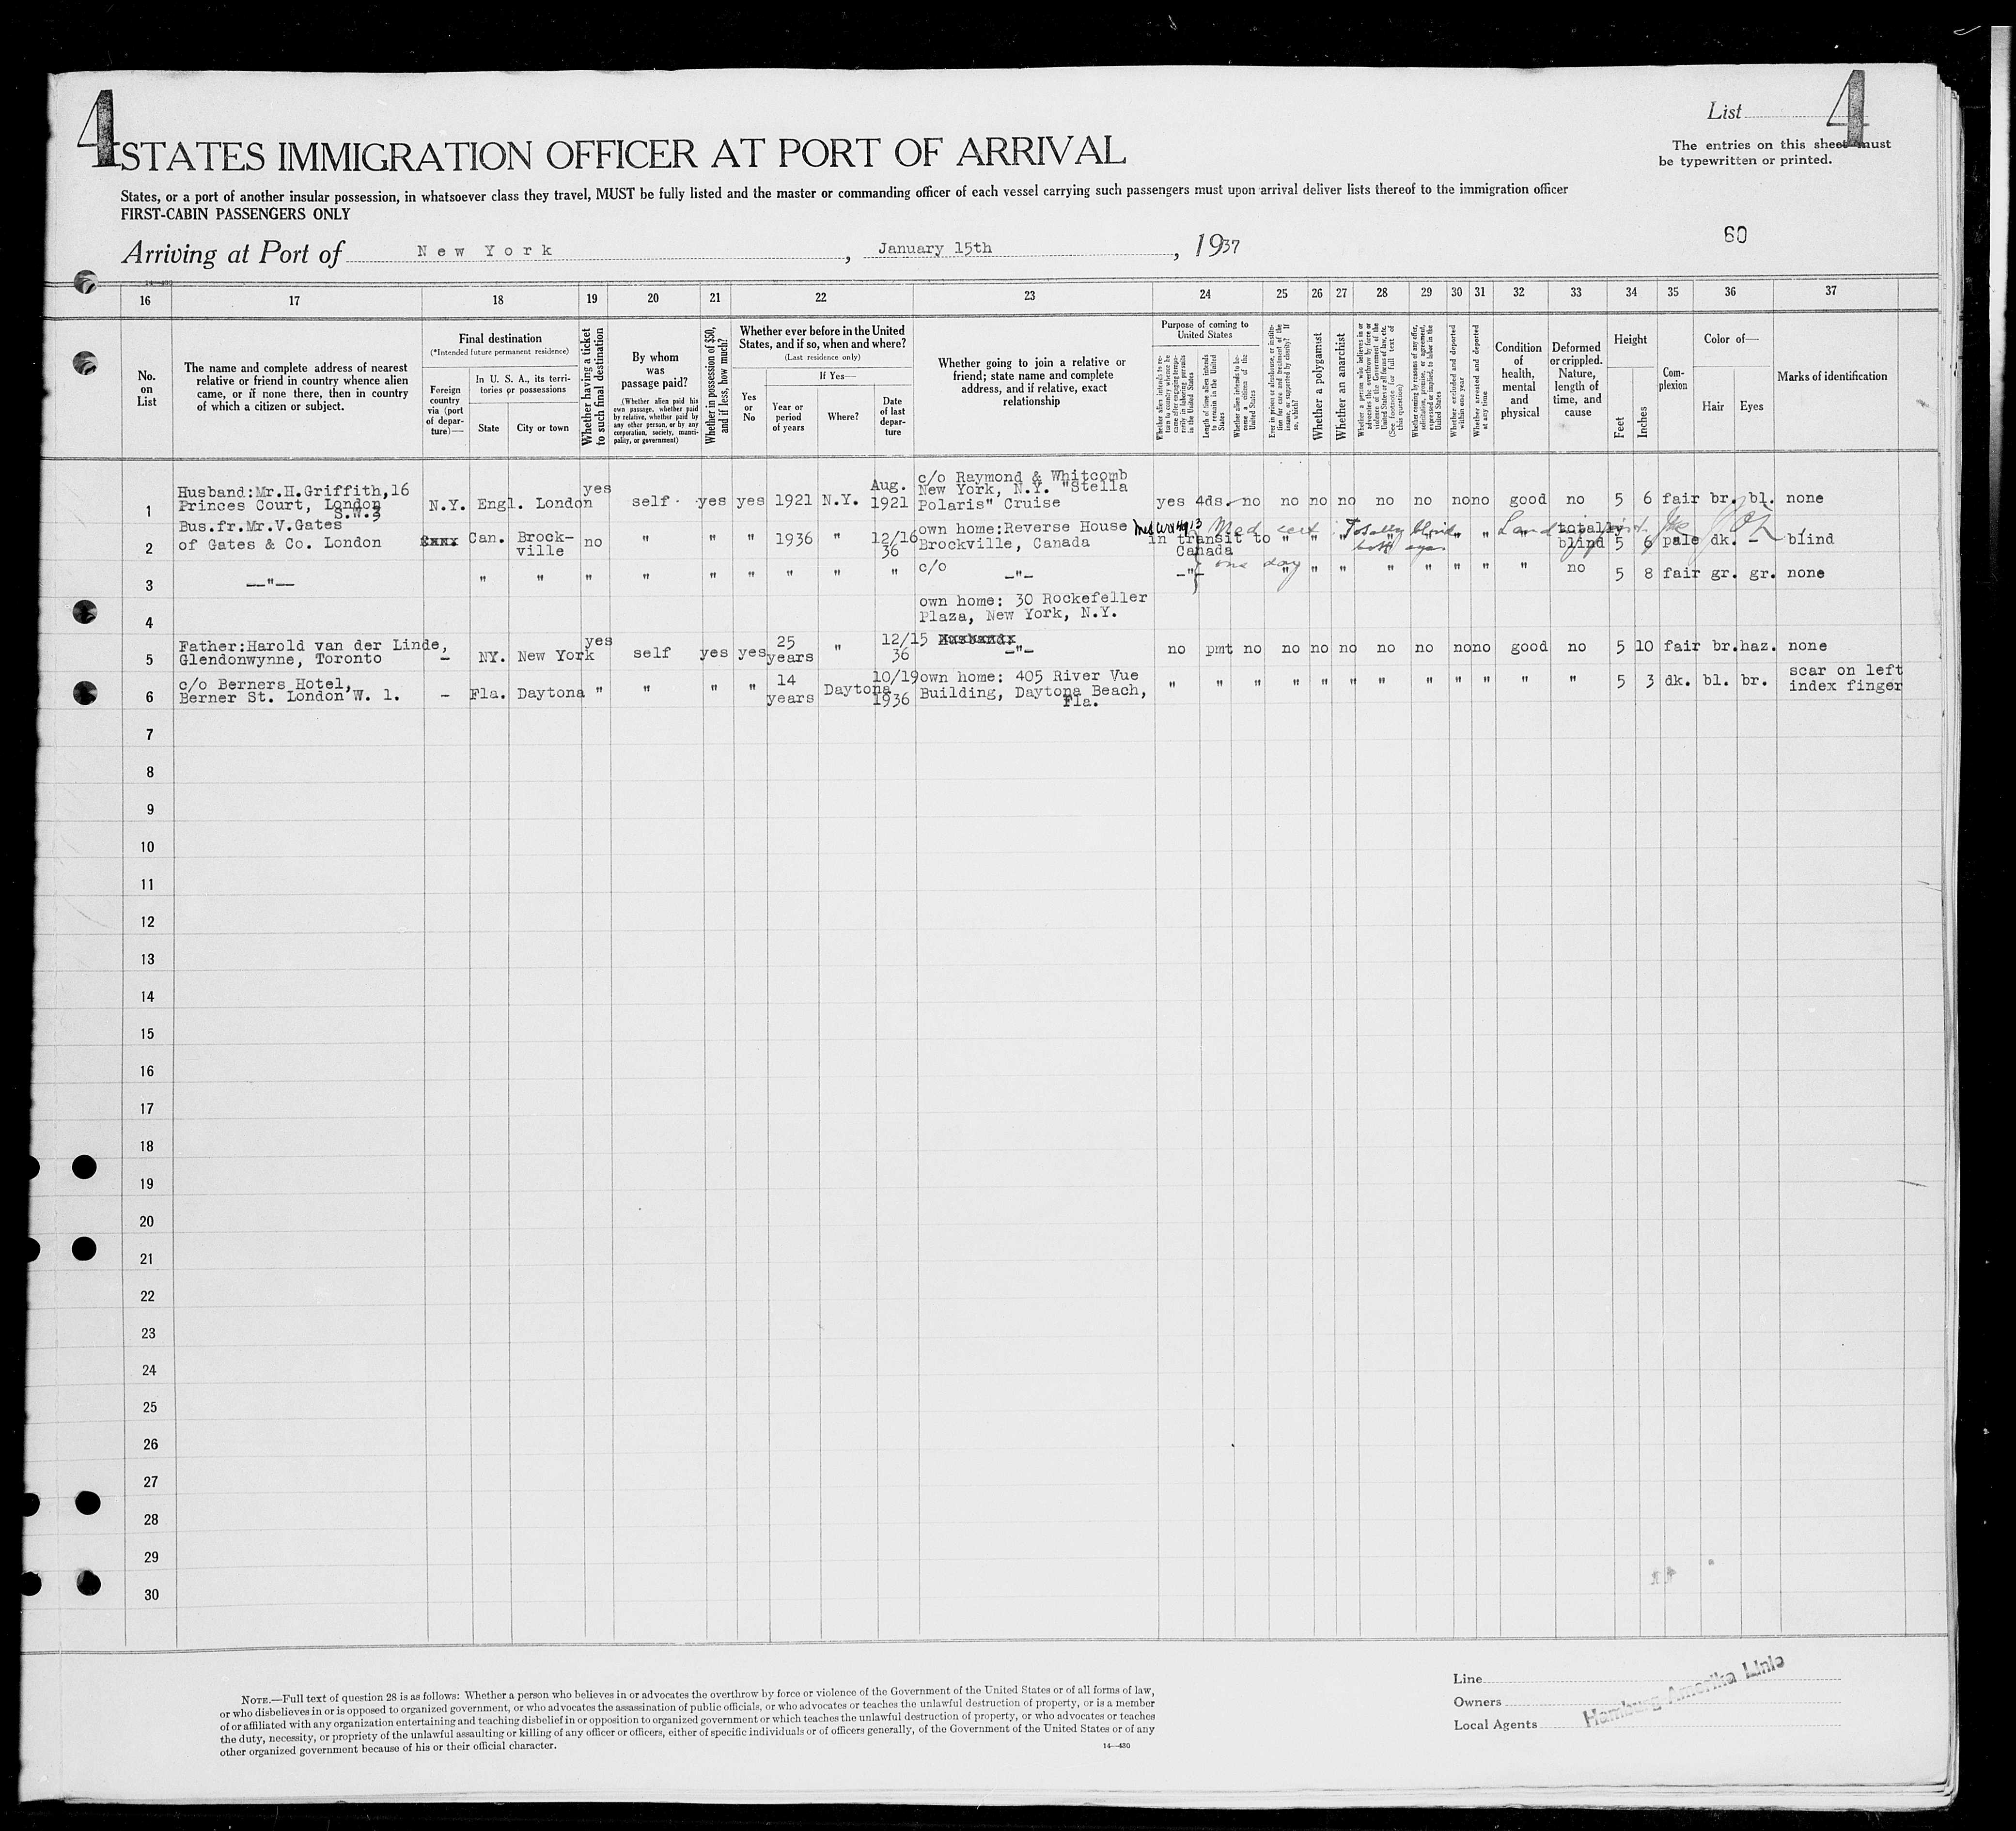 4
4
List
STATES IMMIGRATION OFFICER AT PORT OF ARRIVAL
The entries on this sheet must
be typewritten or printed.
States, or a port of another insular possession, in whatsoever class they travel, MUST be fully listed and the master or commanding officer of each vessel carrying such passengers must upon arrival deliver lists thereof to the immigration officer
FIRST-CABIN PASSENGERS ONLY
Arriving at Port of New York, January 15th, 1937
60
16 17 18 19 20 21 22 23 24 25 26 27 28 29 30 31 32 33 34 35 36 37
No. on List
The name and complete address of nearest
relative or friend in country whence alien
came, or if none there, then in country
of which a citizen or subject.
Final destination
(*Intended future permanent residence)
Foreign country via (port of departure)—
In U. S. A., its territories or possessions
State
City or town
Whether having a ticket to such final destination
By whom was passage paid?
(Whether alien paid his own passage, whether paid by relative, whether paid by any other person, or by any corporation, society, municipality, or government)
Whether in possession of $50, and if less, how much?
Whether ever before in the United States, and if so, when and where?
(Last residence only)
Yes or No
If Yes—
Year or period of years
Where?
Date of last departure
Whether going to join a relative or
friend; state name and complete
address, and if relative, exact
relationship
Purpose of coming to United States
Whether alien intends to return to country whence he came after engaging temporarily in laboring pursuits in the United States
Length of time alien intends to remain in the United States
Whether alien intends to become a citizen of the United States
Ever in prison or almshouse, or institution for care and treatment of the insane, or supported by charity? If so, which?
Whether a polygamist
Whether an anarchist
Whether a person who believes in or advocates the overthrow by force or violence of the Government of the United States or all forms of law, etc. (See footnote for full text of this question)
Whether coming by reasons of any offer, solicitation, promise, or agreement, expressed or implied, to labor in the United States
Whether excluded and deported within one year
Whether arrested and deported at any time
Condition of health, mental and physical
Deformed or crippled. Nature, length of time, and cause
Height
Feet
Inches
Complexion
Color of—
Hair
Eyes
Marks of identification
1 Husband:Mr.H.Griffith,16 Princes Court, London S.W.3 N.Y. Engl. London yes self yes yes 1921 N.Y. Aug. 1921 c/o Raymond & Whitcomb New York, N.Y. "Stella Polaris" Cruise yes 4ds. no no no no no no no no good no 5 6 fair br. bl. none
2 Bus.fr.Mr.V.Gates of Gates & Co. London Can. Brock-ville no " " " 1936 " 12/16 36 own home:Reverse House Brockville, Canada in transit to Canada Med cert Totally blind both eyes " " " " " " " " totally blind 5 6 pale dk. - blind
OK
3 --"-- " " " " " " " " " c/o -"- -"- one day " " " " " " " " no 5 8 fair gr. gr. none
4 own home: 30 Rockefeller Plaza, New York, N.Y.
5 Father:Harold van der Linde, Glendonwynne, Toronto - NY. New York yes self yes yes 25 years " 12/15 36 -"- no pmt no no no no no no no no good no 5 10 fair br. haz. none
6 c/o Berners Hotel, Berner St. London W. 1. - Fla. Daytona " " " " 14 years Daytona 10/19 1936 own home: 405 River Vue Building, Daytona Beach, Fla. " " " " " " " " " " " " 5 3 dk. bl. br. scar on left index finger
7
8
9
10
11
12
13
14
15
16
17
18
19
20
21
22
23
24
25
26
27
28
29
30
NOTE.—Full text of question 28 is as follows: Whether a person who believes in or advocates the overthrow by force or violence of the Government of the United States or of all forms of law,
or who disbelieves in or is opposed to organized government, or who advocates the assassination of public officials, or who advocates or teaches the unlawful destruction of property, or is a member
of or affiliated with any organization entertaining and teaching disbelief in or opposition to organized government or which teaches the unlawful destruction of property, or who advocates or teaches
the duty, necessity, or propriety of the unlawful assaulting or killing of any officer or officers, either of specific individuals or of officers generally, of the Government of the United States or of any
other organized government because of his or their official character.
14—430
Line
Owners
Local Agents
Hamburg-Amerika Linie